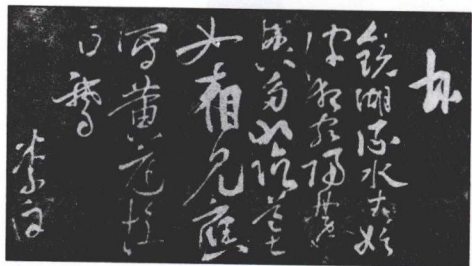 鏡湖流水春始
波狂客歸舟逸
興多山陰道士
如相見應
寫黃庭換
白鵝